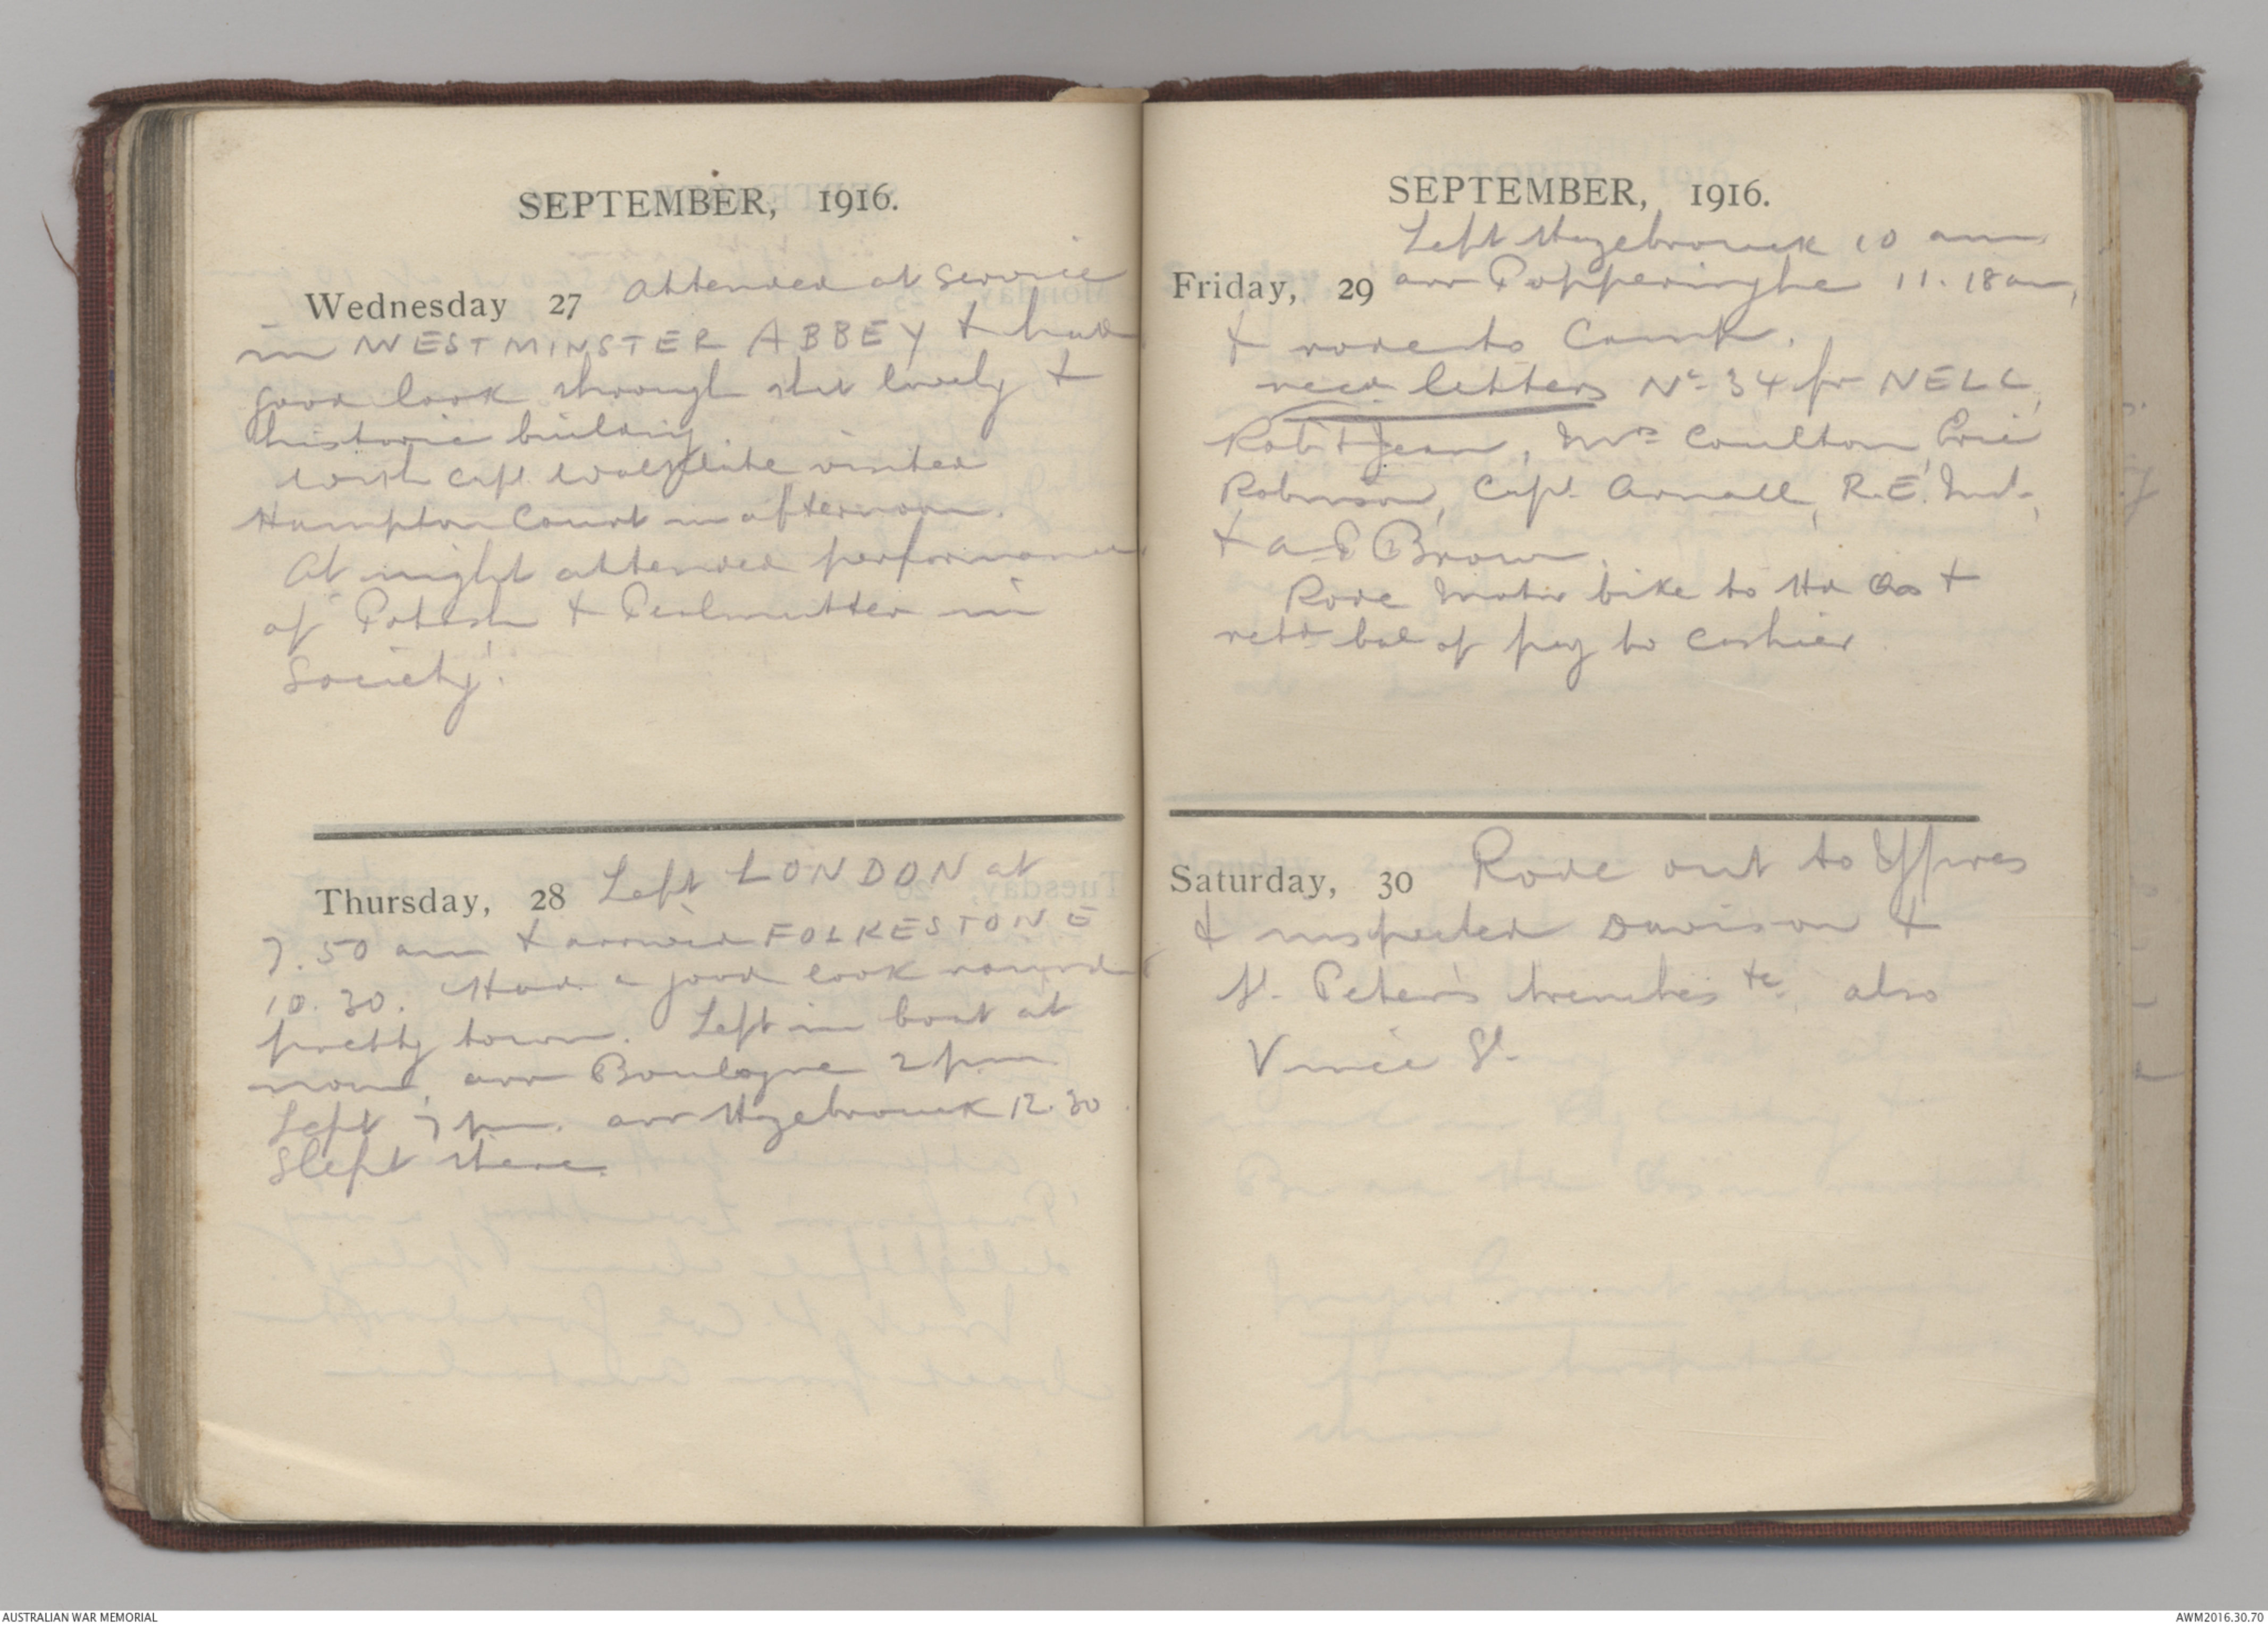 SEPTEMBER, 1916.
Wednesday 27 attended at service
in WESTMINSTER ABBEY & had
good look through this lovely &
historic building.
With Capt visited
Hampton Court in afternoon.
At night attended performance
of Potash & Perlmutter in
Society'.
Thursday, 28 Left LONDON at
7.50 am & arrived FOLKESTONE
10.30. Had a good look round
pretty town. Left in boat at
noon, arr Boulogne 2 pm
Left 7 pm. arr Hazebrouck 12.30
Slept there.
SEPTEMBER, 1916.
Left Hazebrouck 10 am
Friday, 29 arr Popperinghe 11.18 am,
& rode to Camp.
recd letters No 34 fr NELL,
Rob & Jean, Mrs Coulton,
Robinson, Capt. Arnall, R.E.
& A E Brown.
Rode motor bike to Hd Qrs &
retd bal of pay to cashier
Saturday, 30 Rode out to Ypres
& inspected Davison &
St. Peter's trenches &c, also
Vince St.
AUSTRALIAN WAR MEMORIAL
AWM2016.30.70